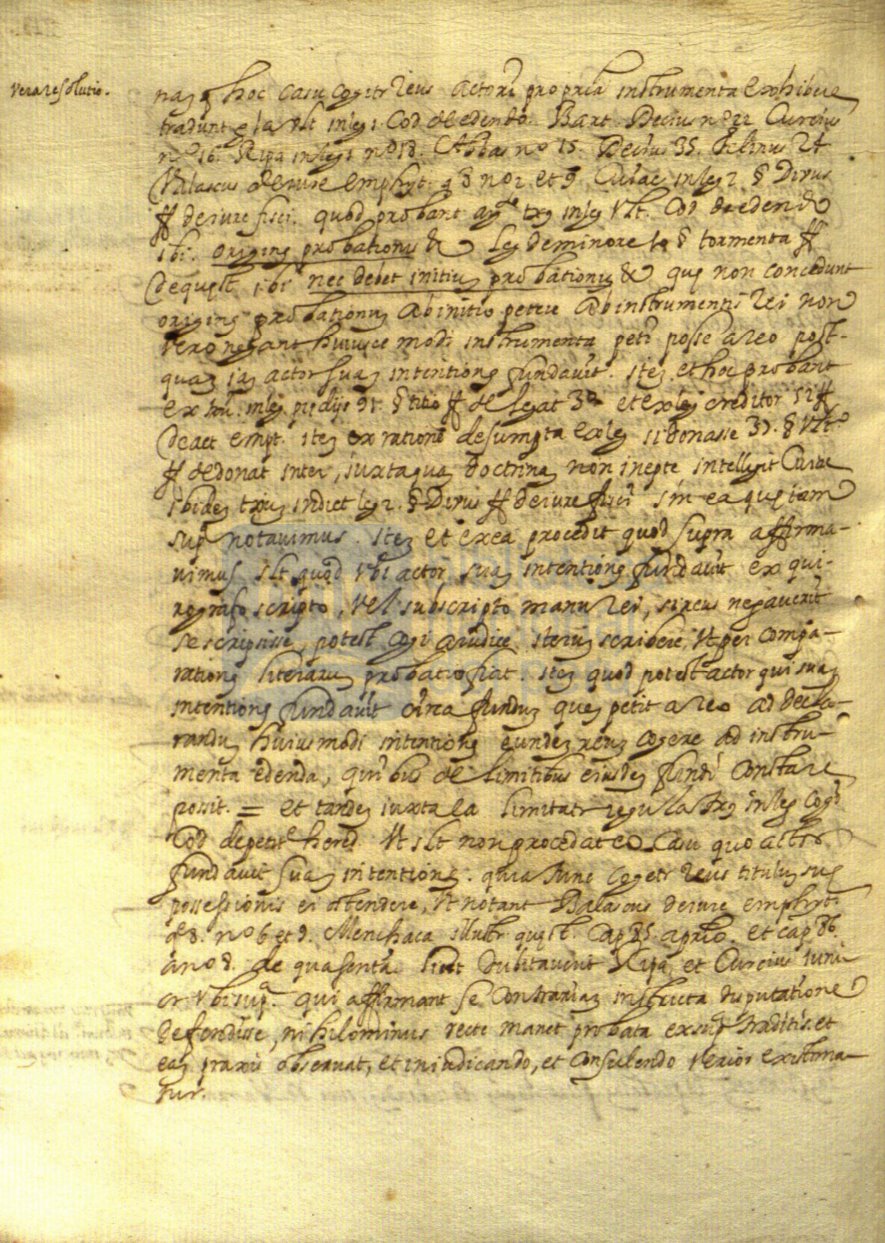 Vera resolutio.
naz q hoc casu cogitr Reus actori propria instrumenta exhibere
tradunt gla vlt in leg 1 Cod de edendo. Bart. Decius nº 22 Curcius
nº 16. Ripa in leg 1 nº 18. Abbas nº 15. Decius 35. Felinus 24
Valascus de iure emphyt. q 8 nº 2 et 9. Cuiac in leg 2. § Divus
ff de iure fisci. quod probant in leg vlt. Cod de edendo
ibi. origine probationis & leg de minore § tormenta ff
de quest. ibi nec debet initiuz probationis & que non concedunt
origine probationuz ab initio petere ab instrumentis Rei non
vero negant huiusce modi instrumenta peti posse a reo post-
quaz iaz actor suaz intentionez fundavit. itez et hoc probant
ex in leg prediis 91. § titio ff de legat 3º et ex leg creditor 52 ff
de act empt. itez ex ratione desumpta ex leg si donasse 3 § vlt
ff de donat inter, iuxta quaz doctrinaz non inepte intellegit Cuiac
ibidez in dict leg 2. § Divus ff de iure fisci sm ea que iam
supª notavimus. itez et ex ea procedit quod supra affirma-
vimus slt quod vbi actor suaz intentionez fundavit ex qui-
rografo scripto, vel subscripto manu Rei, si reus negaverit
se scripsisse, potest cogi a iudice iterum scribere, vt per compa-
rationez literaruz probatio fiat. itez quod potest actor qui suaz
intentionez fundavit circa funduz quez petit a Reo ad decla-
randuz huiusmodi intentionez eundez reuz cogere ad instru-
menta edenda, quibus de limitibus eiusdez fundi constare
possit. = et tandez iuxta ea limitatr regula in leg cogi
Cod de petit hered vt slt non procedat eo casu quo actor
fundavit suaz intentionez. quia tunc cogetr Reus tituluz suae
possessionis ei ostendere, vt notant Valascus de iure emphyt
q 8. nº 6 et 9. Menchaca illustr quest. cap 85. a prio. et cap 86.
a nº 8. de qua sententia licet dubitaverit Ripa et Curcius iuni-
or vbi supª. qui affirmant se contrariaz in stricta disputatione
defendisse, nihilominus recte manet probata ex supª traditis. et
eaz praxis observat, et in iudicando, et consulendo verior existima-
tur.